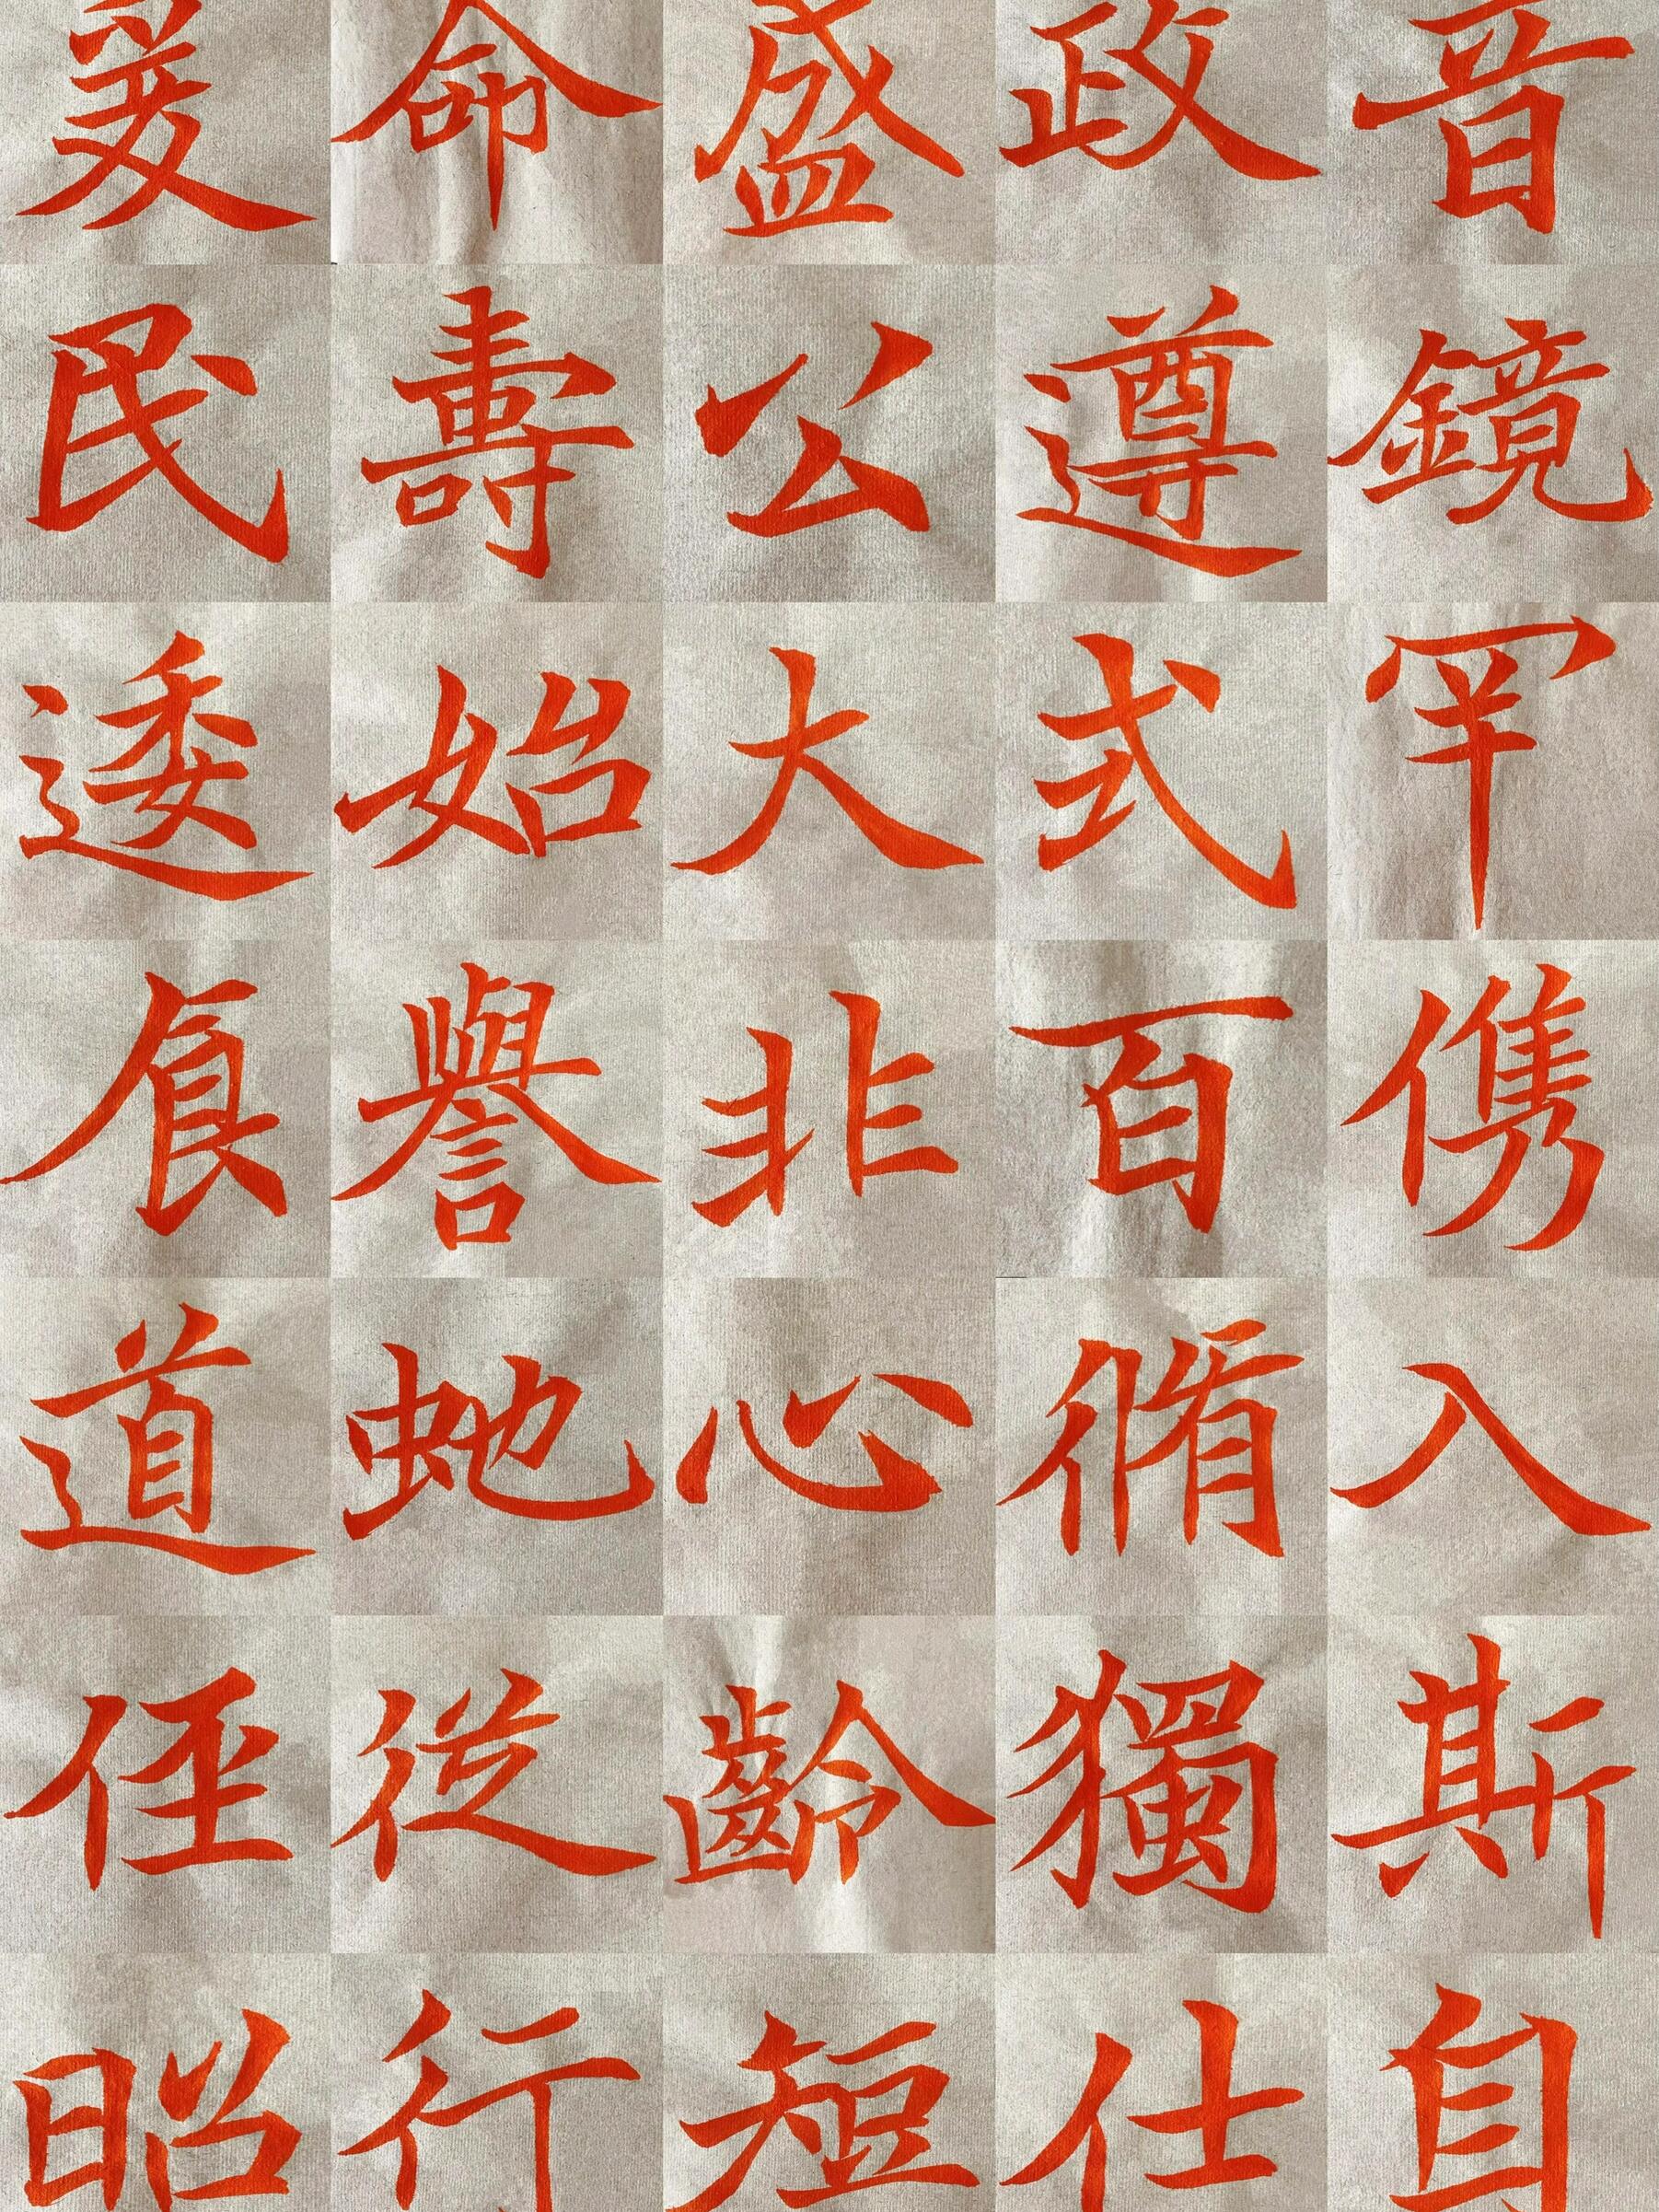 爰命盛政音
民壽公遵鏡
逶始大式罕
食譽非百儁
道虵心脩入
俓從齡獨斯
昭行短仕自